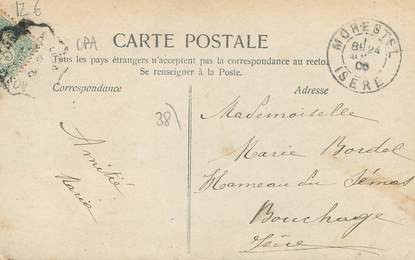 12.6
CPA
CARTE POSTALE
Tous les pays étrangers n'acceptent pas la correspondance au recto.
Se renseigner à la Poste.
MORESTEL
ISÈRE
Correspondance
Adresse
38)
Amitié
Marie
Mademoiselle
Marie Bordel
Hameau du
Bouchage
Isère